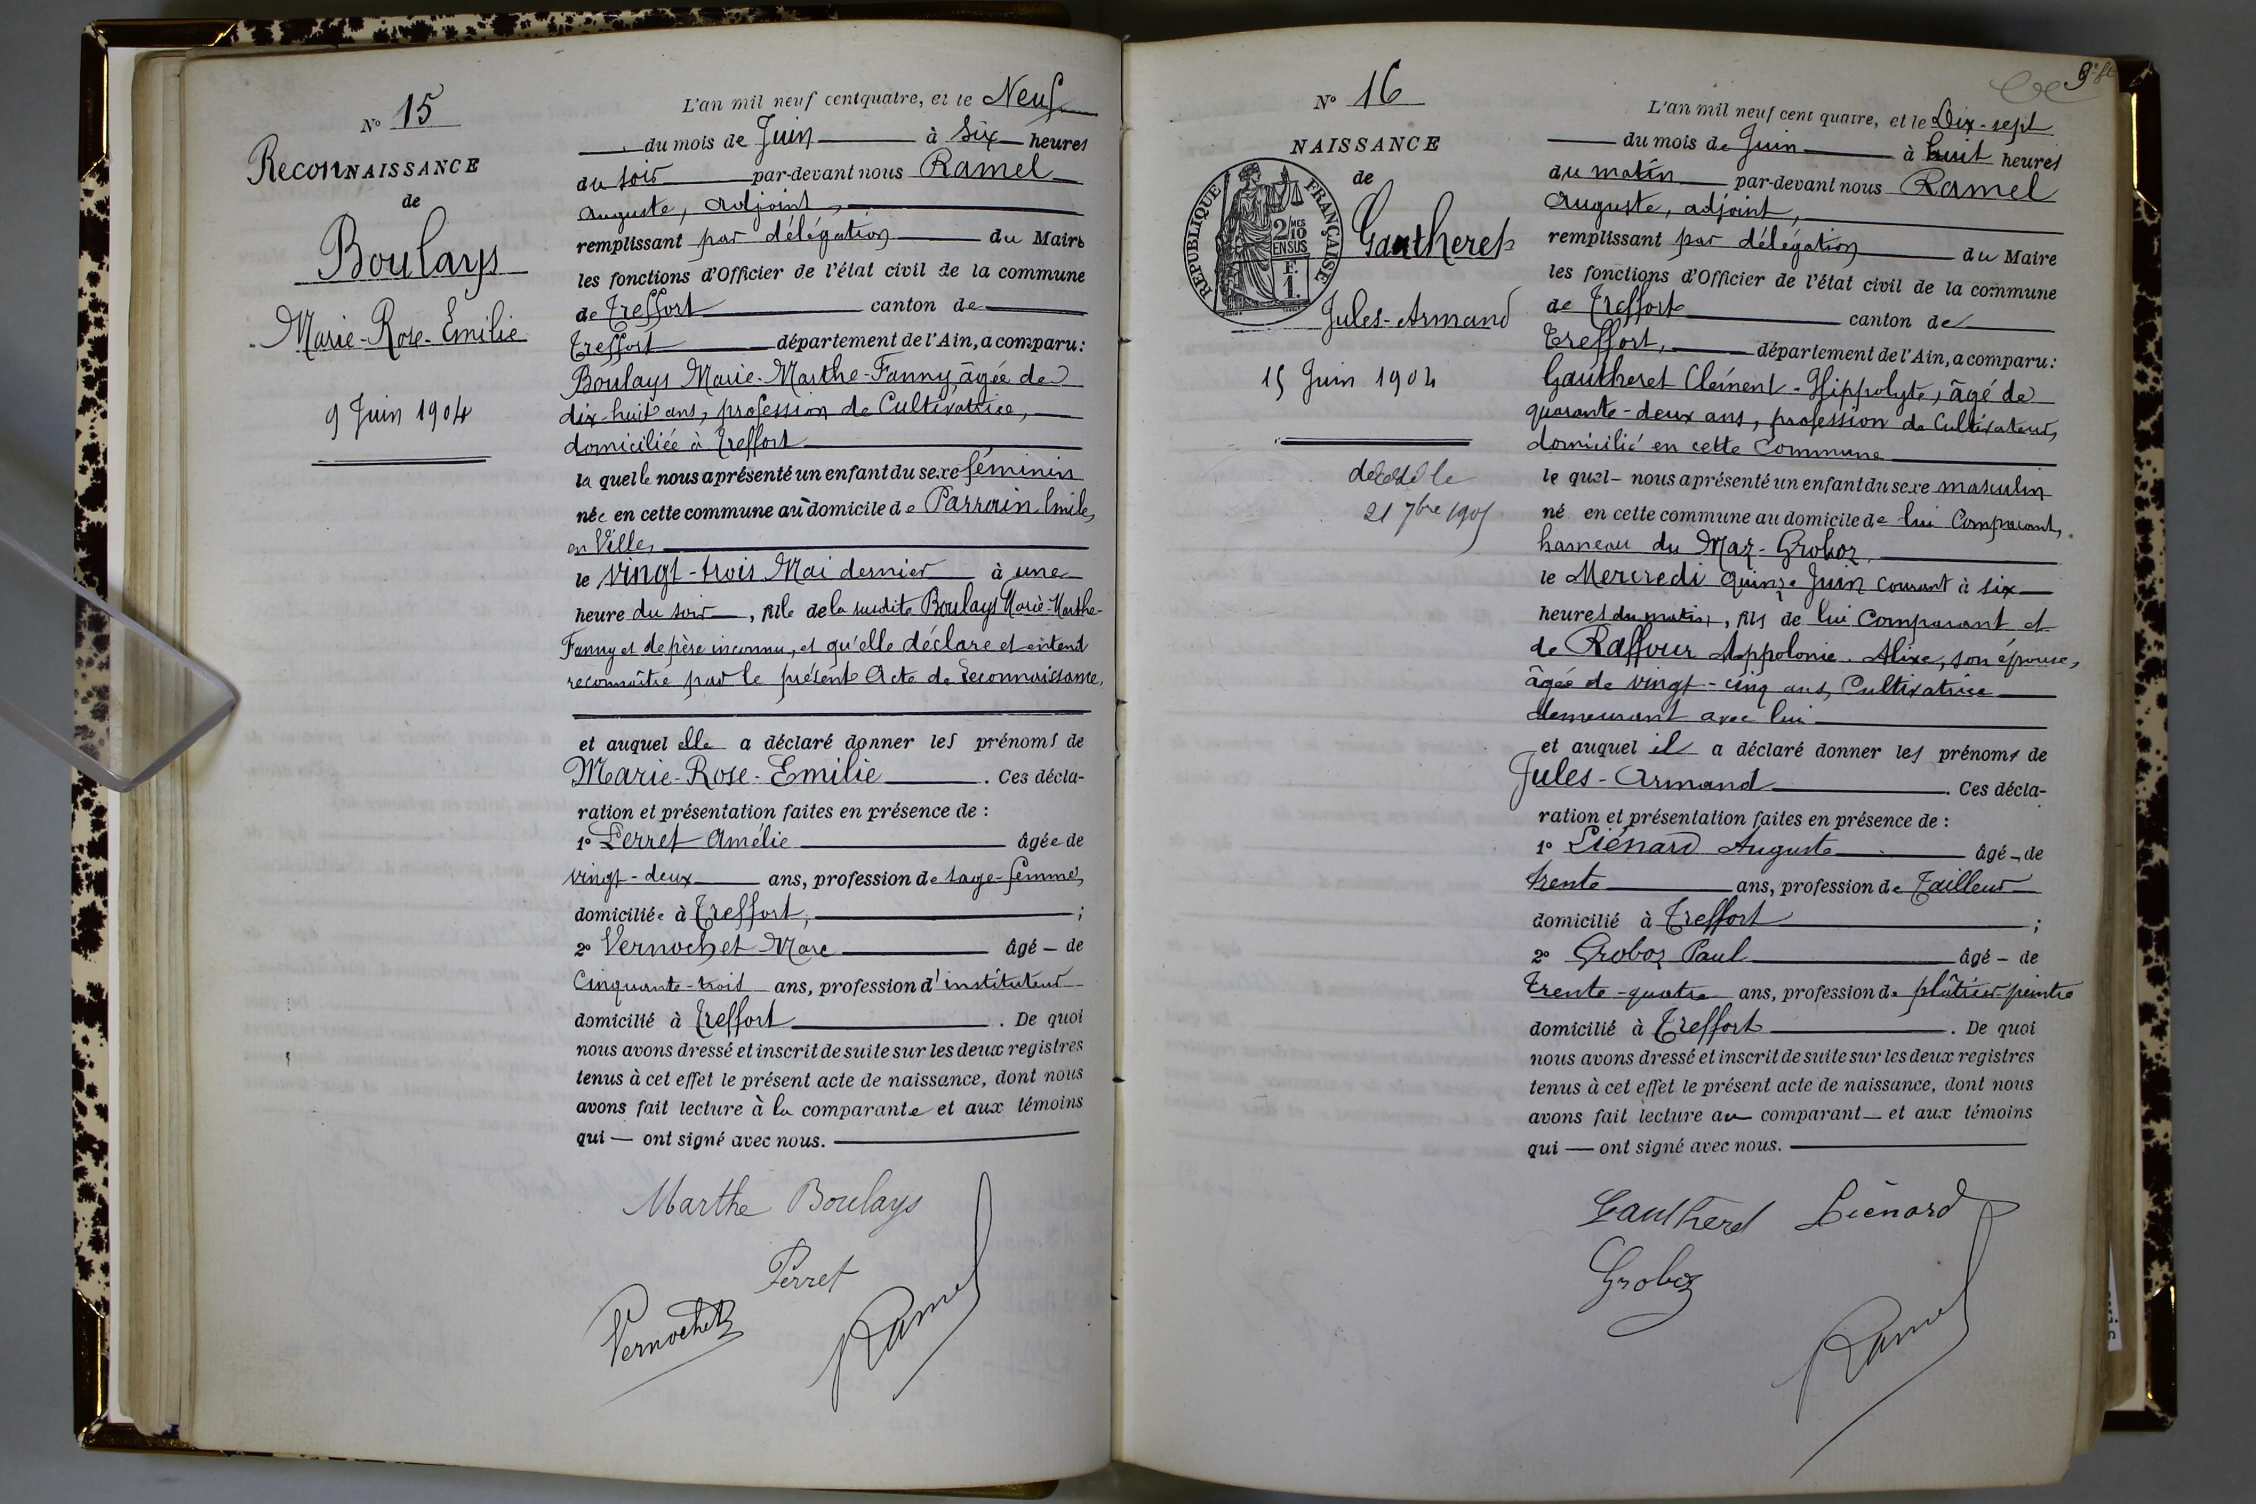 N° 15
ReconNAISSANCE
de
Boulays
Marie-Rose-Emilie
9 Juin 1904
L'an mil neuf cent quatre, et le Neuf
du mois de Juin à Six heures
du soir par-devant nous Ramel
Auguste, adjoint,
remplissant par délégation du Maire
les fonctions d'Officier de l'état civil de la commune
de Treffort canton de
Treffort département de l'Ain, a comparu :
Boulays Marie-Marthe-Fanny, âgée de
dix-huit ans, profession de Cultivatrice,
domiciliée à Treffort
la quelle nous a présenté un enfant du sexe féminin
née en cette commune au domicile de Parrain Emile,
en Ville,
le vingt-trois Mai dernier à une
heure du soir, fille de la susdite Boulays Marie-Marthe-
Fanny et de père inconnu, et qu'elle déclare et entend
reconnaître par le présent Acte de reconnaissance,
et auquel elle a déclaré donner les prénoms de
Marie-Rose-Emilie. Ces décla-
ration et présentation faites en présence de :
1° Perret Amélie âgée de
vingt-deux ans, profession de sage-femme,
domiciliée à Treffort, ;
2° Vernochet Marc âgé – de
Cinquante-trois ans, profession d'instituteur
domicilié à Treffort. De quoi
nous avons dressé et inscrit de suite sur les deux registres
tenus à cet effet le présent acte de naissance, dont nous
avons fait lecture à la comparante et aux témoins
qui — ont signé avec nous.
Marthe Boulays
Perret
Vernochet
Ramel
9e
N° 16
NAISSANCE
de
RÉPUBLIQUE FRANÇAISE
2/10 MES
EN SUS
F.
1.
Gautheret
Jules-Armand
15 Juin 1904
décédé le
21 7bre 1905
L'an mil neuf cent quatre, et le Dix-sept
du mois de Juin à huit heures
du matin par-devant nous Ramel
Auguste, adjoint,
remplissant par délégation du Maire
les fonctions d'Officier de l'état civil de la commune
de Treffort canton de
Treffort, département de l'Ain, a comparu :
Gautheret Clément-Hippolyte, âgé de
quarante-deux ans, profession de Cultivateur,
domicilié en cette Commune
le quel – nous a présenté un enfant du sexe masculin
né en cette commune au domicile de lui Comparant,
hameau du Maz-Groboz,
le Mercredi quinze Juin courant à six
heures du matin, fils de lui Comparant et
de Raffour Appolonie-Alixe, son épouse,
âgée de vingt-cinq ans, Cultivatrice
demeurant avec lui
et auquel il a déclaré donner les prénoms de
Jules-Armand. Ces décla-
ration et présentation faites en présence de :
1° Liénard Auguste âgé – de
trente ans, profession de Tailleur
domicilié à Treffort ;
2° Groboz Paul âgé – de
Trente-quatre ans, profession de plâtrier-peintre
domicilié à Treffort. De quoi
nous avons dressé et inscrit de suite sur les deux registres
tenus à cet effet le présent acte de naissance, dont nous
avons fait lecture au comparant – et aux témoins
qui — ont signé avec nous.
Gautheret Liénard
Groboz
Ramel